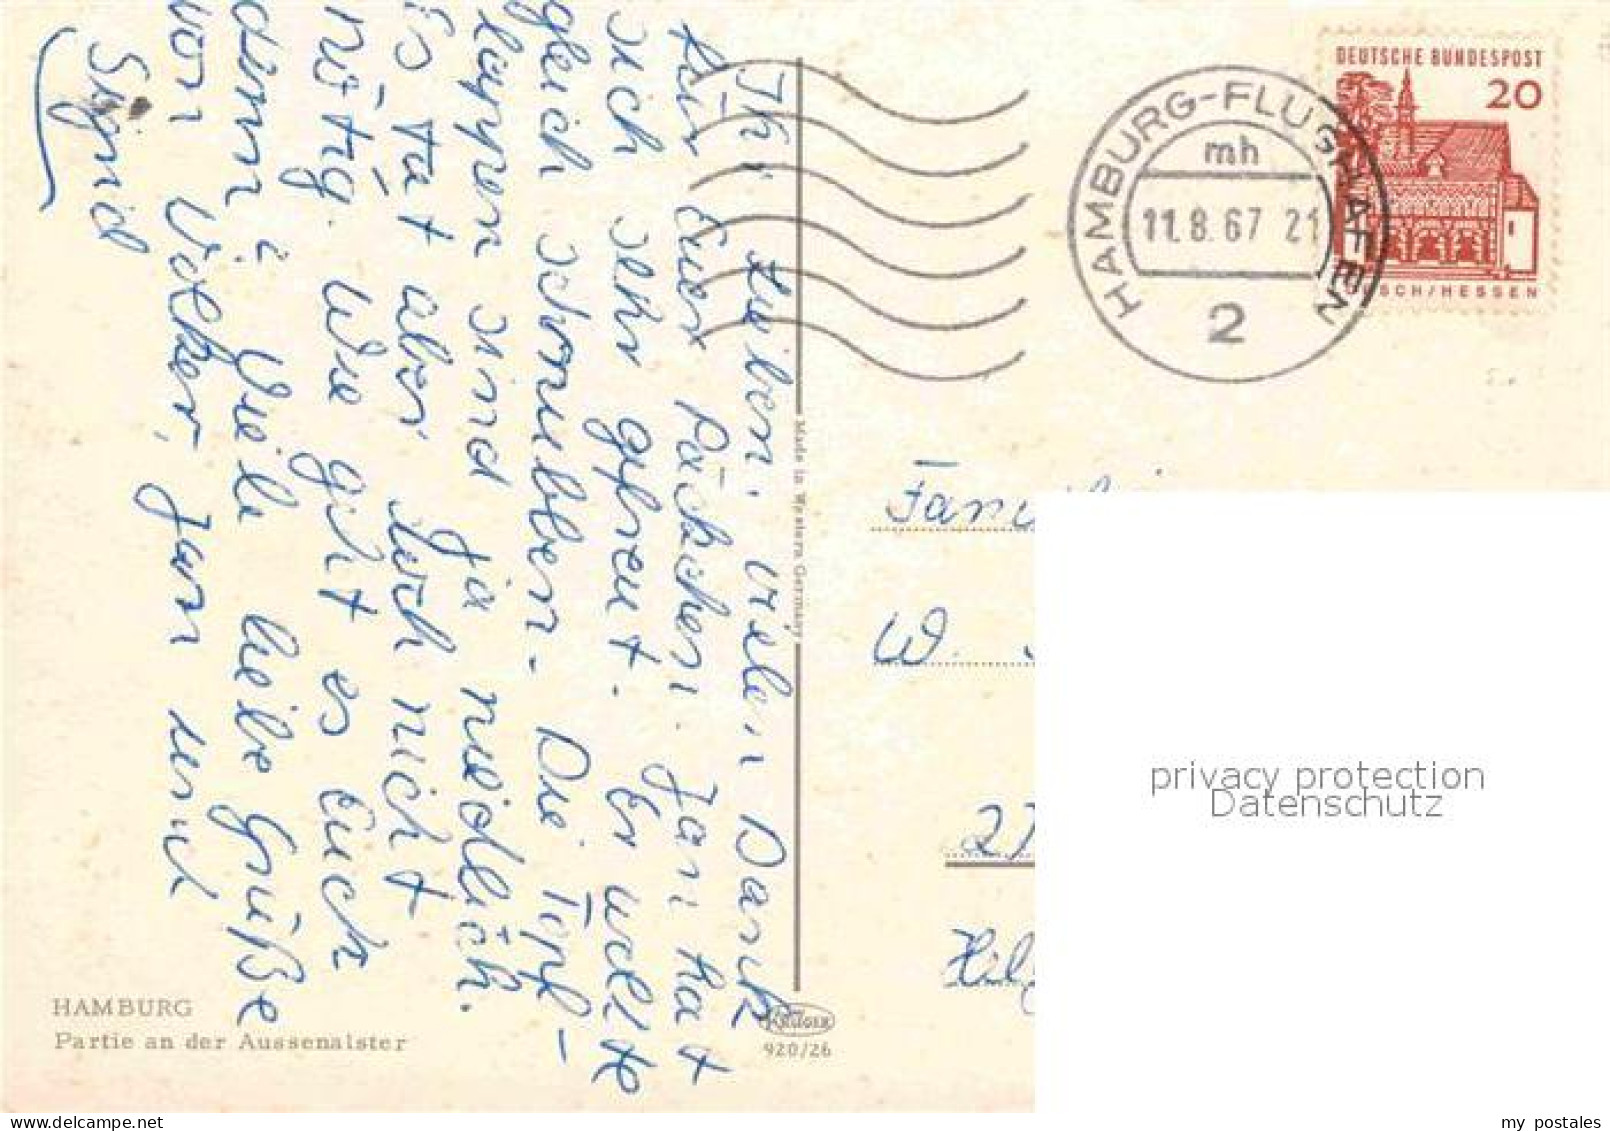 Ihr Lieben, vielen Dank
für Euer Päckchen. Jan hat
sich sehr gefreut. Er wollte
gleich schnubbern. Die Topf-
lappen sind ja niedlich.
Es tät aber doch nicht
nötig. Wie geht es Euch
denn? Viele liebe Grüße
von Volker, Jan und
Sigrid
HAMBURG
Partie an der Aussenalster
Made in Western Germany
KRÜGER
920/26
HAMBURG-FLUGHAFEN
mh
11.8.67 21
2
DEUTSCHE BUNDESPOST
20
SCH/HESSEN
W.
27
privacy protection
Datenschutz
my postales